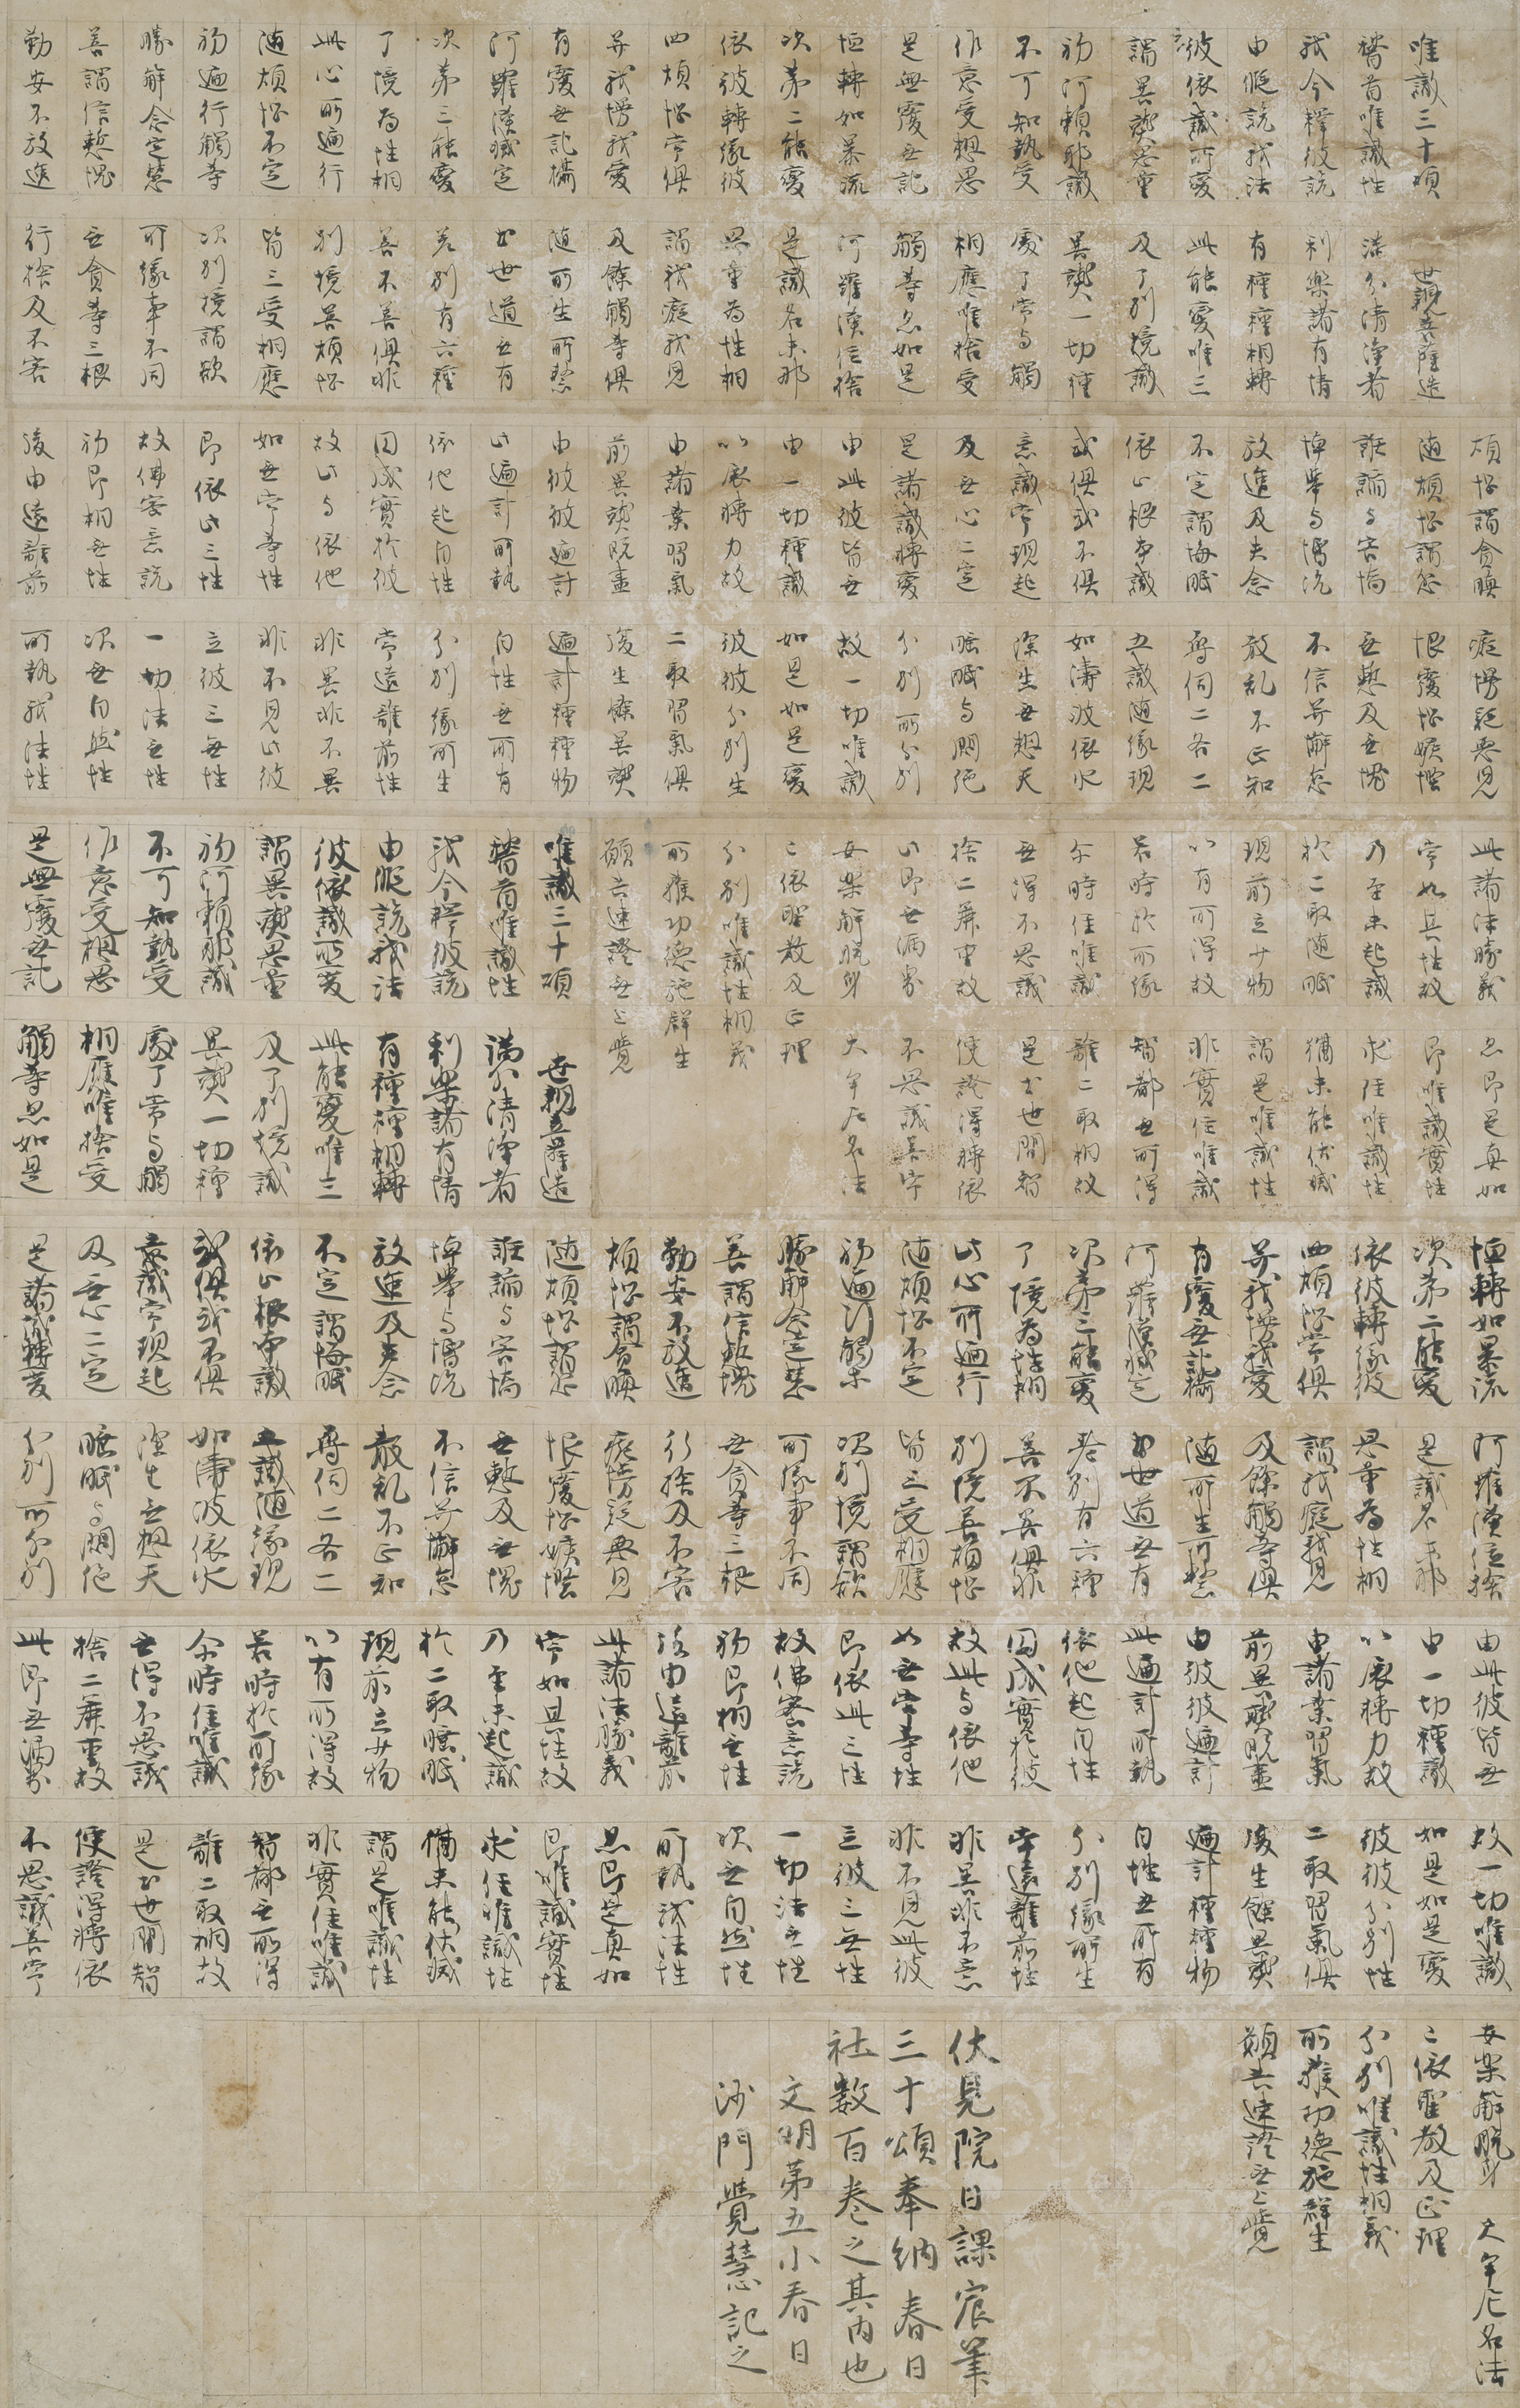 唯識三十頌 世親菩薩造
稽首唯識性 滿分清淨者
我今釋彼說 利樂諸有情
由假說我法 有種種相轉
彼依識所變 此能變唯三
謂異熟思量 及了別境識
初阿賴耶識 異熟一切種
不可知執受 處了常与觸
作意受想思 相應唯捨受
是無覆无記 觸等亦如是
恒轉如暴流 阿羅漢位捨
次第二能變 是識名末那
依彼轉緣彼 思量為性相
四煩惱常俱 謂我癡我見
并我慢我愛 及餘觸等俱
有覆无記攝 随所生所繫
阿羅漢滅定 出世道无有
次第三能變 差別有六種
了境為性相 善不善俱非
此心所遍行 別境善煩惱
随煩惱不定 皆三受相應
初遍行觸等 次別境謂欲
勝解念定慧 所緣事不同
善謂信慙愧 无貪等三根
勤安不放逸 行捨及不害
煩惱謂貪瞋 癡慢疑惡見
随煩惱謂忿 恨覆惱嫉慳
誑諂与害憍 无慙及无愧
掉舉与惛沉 不信并懈怠
放逸及失念 散乱不正知
不定謂悔眠 尋伺二各二
依止根本識 五識随緣現
或俱或不俱 如濤波依水
意識常現起 除生无想天
及无心二定 睡眠与悶絶
是諸識轉變 分別所分別
由此彼皆无 故一切唯識
由一切種識 如是如是變
以展轉力故 彼彼分別生
由諸業習氣 二取習氣俱
前異熟既盡 復生餘異熟
由彼彼遍計 遍計種種物
此遍計所執 自性无所有
依他起自性 分別緣所生
圓成實於彼 常遠離前性
故此与依他 非異非不異
如无常等性 非不見此彼
即依此三性 立彼三無性
故佛密意說 一切法无性
初即相无性 次无自然性
後由遠離前 所執我法性
此諸法勝義 亦即是真如
常如其性故 即唯識實性
乃至未起識 求住唯識性
於二取随眠 猶未能伏滅
現前立少物 謂是唯識性
以有所得故 非實住唯識
若時於所緣 智都无所得
尒時住唯識 離二取相故
无得不思議 是出世間智
捨二麁重故 便證得轉依
此即无漏界 不思議善常
安樂解脫身 大牟尼名法
已依聖教及正理
分別唯識性相義
所獲功德施群生
願共速證无上覺
唯識三十頌 世親菩薩造
稽首唯識性 滿分清淨者
我今釋彼說 利樂諸有情
由假說我法 有種種相轉
彼依識所變 此能變唯三
謂異熟思量 及了別境識
初阿賴耶識 異熟一切種
不可知執受 處了常与觸
作意受想思 相應唯捨受
是無覆无記 觸等亦如是
恒轉如暴流 阿羅漢位捨
次第二能變 是識名末那
依彼轉緣彼 思量為性相
四煩惱常俱 謂我癡我見
并我慢我愛 及餘觸等俱
有覆无記攝 随所生所繫
阿羅漢滅定 出世道无有
次第三能變 差別有六種
了境為性相 善不善俱非
此心所遍行 別境善煩惱
随煩惱不定 皆三受相應
初遍行觸等 次別境謂欲
勝解念定慧 所緣事不同
善謂信慙愧 无貪等三根
勤安不放逸 行捨及不害
煩惱謂貪瞋 癡慢疑惡見
随煩惱謂忿 恨覆惱嫉慳
誑諂与害憍 无慙及无愧
掉舉与惛沉 不信并懈怠
放逸及失念 散乱不正知
不定謂悔眠 尋伺二各二
依止根本識 五識随緣現
或俱或不俱 如濤波依水
意識常現起 除生无想天
及无心二定 睡眠与悶絶
是諸識轉變 分別所分別
由此彼皆无 故一切唯識
由一切種識 如是如是變
以展轉力故 彼彼分別性
由諸業習氣 二取習氣俱
前異熟既盡 復生餘異熟
由彼彼遍計 遍計種種物
此遍計所執 自性无所有
依他起自性 分別緣所生
圓成實於彼 常遠離前性
故此与依他 非異非不意
如无常等性 非不見此彼
即依此三性 立彼三無性
故佛密意說 一切法无性
初即相无性 次无自然性
後由遠離前 所執我法性
此諸法勝義 亦即是真如
常如其性故 即唯識實性
乃至未起識 求住唯識性
於二取睡眠 猶未能伏滅
現前立少物 謂是唯識性
以有所得故 非實住唯識
若時於所緣 智都无所得
尒時住唯識 離二取相故
无得不思議 是出世間智
捨二麁重故 便證得轉依
此即无漏界 不思議善常
安樂解脫身 大牟尼名法
已依聖教及正理
分別唯識性相義
所獲功德施群生
願共速證无上覺
伏見院日課宸筆
三十頌奉納春日
社数百卷之其内也
文明第五小春日
沙門覺慧記之